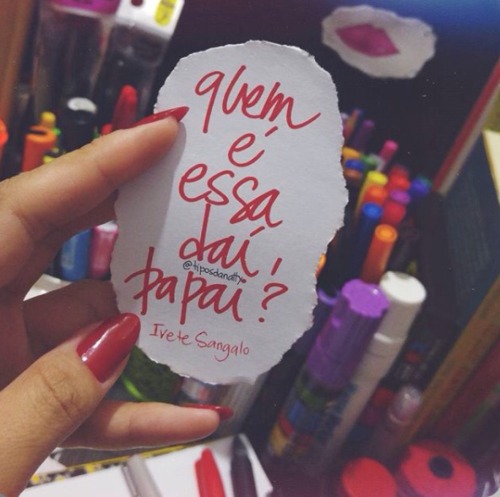 quem
é
essa
daí,
@tiposdanatty
papai?
Ivete Sangalo